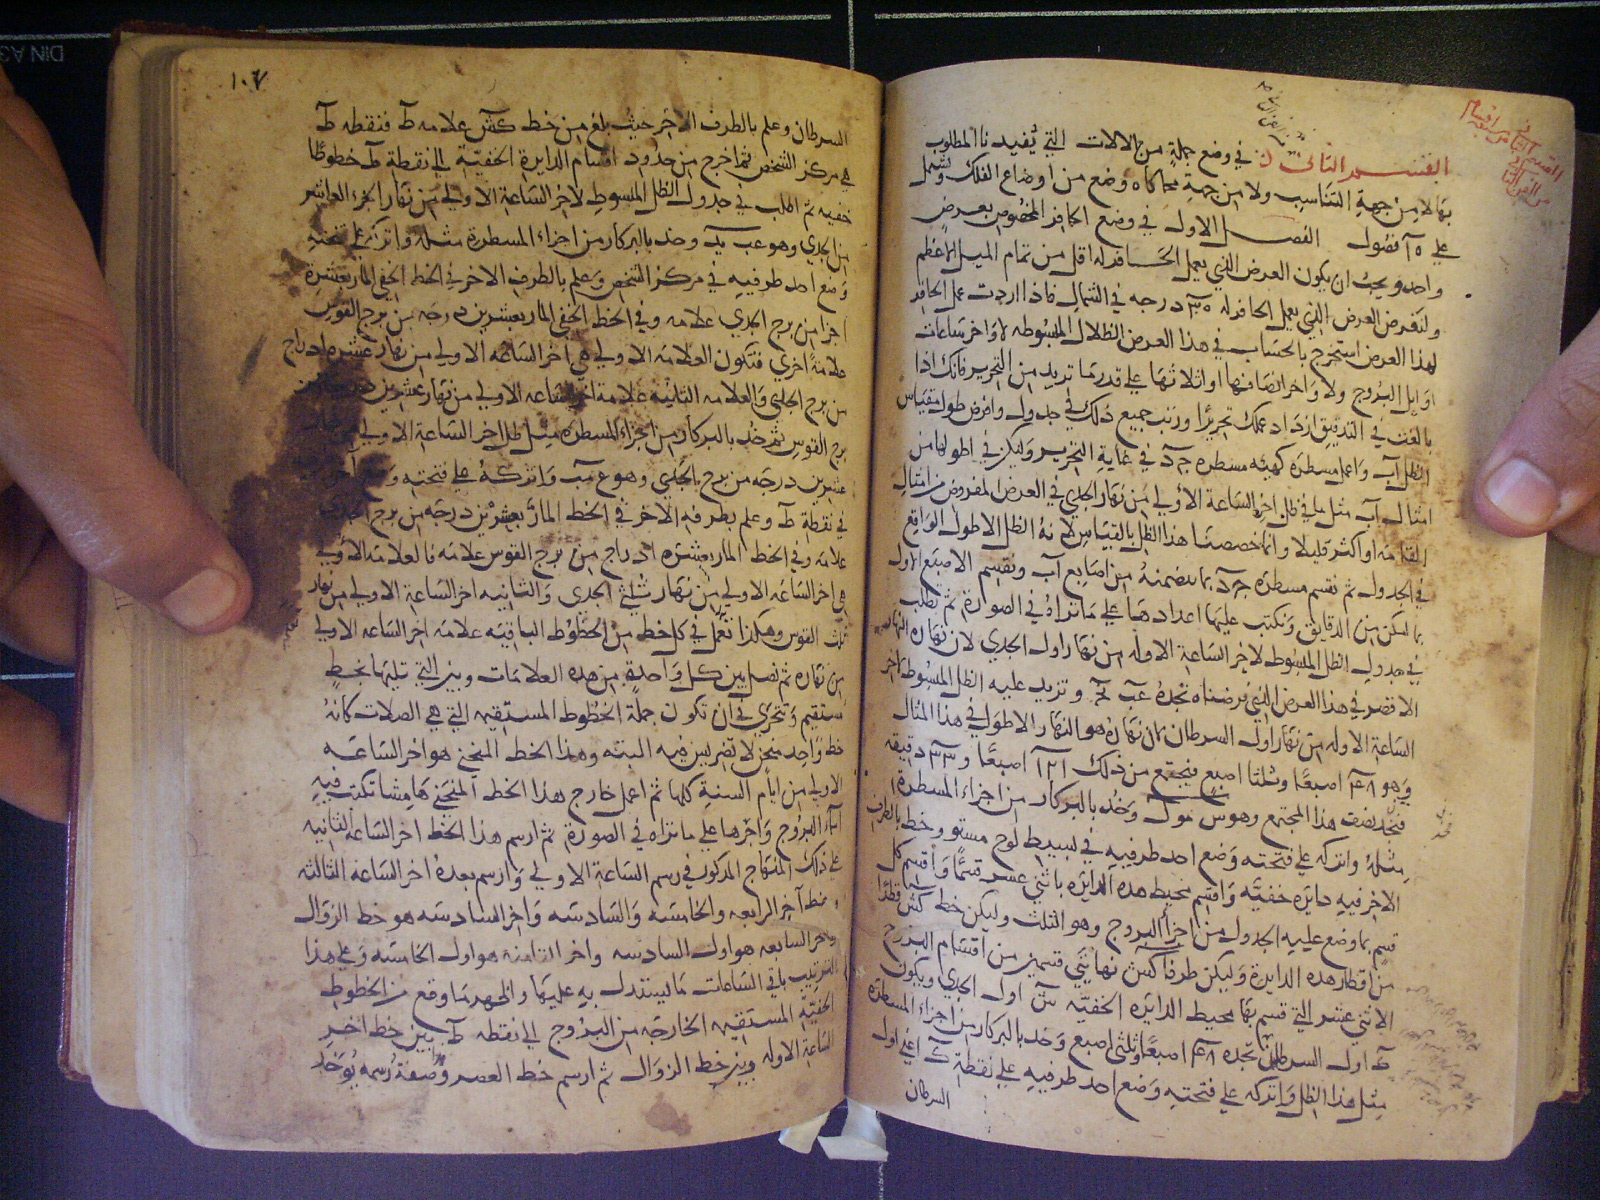 القسم الثاني في وضع جملة من الالات التي يفيدنا المطلوب
بها لا من جهة التناسب ولا من جهة محاكاة وضع من اوضاع الفلك ويشمل
على ١٥ فصول الفصل الاول في وضع الحافر المخصوص بعرض
واحد ويجب ان يكون العرض الذي يعمل الحافر له اقل من تمام الميل الاعظم
ولنفرض العرض الذي يعمل الحافر له درجه في الشمال فاذا اردت عمل الحافر
لهذا العرض استخرج بالحساب في هذا العرض الظلال المبسوطه لاواخر ساعات
اوايل البروج ولاواخر انصافها او اثلاثها على قدر ما تريد من التحرير فانك اذا
بالغت في التدقيق ازداد عملك تحريرا ورتب جميع ذلك في جدول وافرض طول مقياس
الظل اب واعمل مسطره كهيئه مسطره جد في غاية التحرير وليكن في اطولها من
امثال اب مثل ما في ظل اخر الساعة الاولى من نهار الجدي في العرض المفروض من امثال
القامه او اكثر قليلا وانما خصصنا هذا الظل بالقياس لانه الظل الاطول الواقع
في الجدول ثم نقسم مسطره جد بما تتضمنه من اصابع اب ونقسم الاصبع الاول
بما امكن من الدقايق ونكتب عليها اعدادها على ما تراه في الصورة ثم تطلب
في جدول الظل المبسوط لاخر الساعة الاوله من نهار اول الجدي لان نهاره النهار
الاقصر في هذا العرض الذي فرضناه تجده عب وتزيد عليه الظل المبسوط لاخر
الساعة الاوله من نهار اول السرطان لان نهاره هو النهار الاطول في هذا المثال
وهو ٤٨ اصبعا وثلثا اصبع فيجتمع من ذلك ١٢١ اصبعا و ٣٣ دقيقه
فتجد نصف هذا المجتمع وهو وخذ بالبركار من اجزاء المسطرة
مثله واتركه على فتحته وضع احد طرفيه في بسيط لوح مستو وخط بالطرف
الاخر فيه دايره خفيه واقسم محيط هذه الدايره باثني عشر قسما واقسم كل
قسم بما وضع عليه الجدول من اجزا البروج وهو الثلث وليكن خط كش قطرا
من اقطار هذه الدايرة وليكن طرفا كش نهايتي قسمين من اقسام البروج
الاثني عشر التي قسم بها محيط الدايره الخفيه ش اول الجدي ويكون
ك اول السرطان تجده ٤٨ اصبعا وثلثي اصبع وخذ بالبركار من اجزاء المسطره
مثل هذا الظل واتركه على فتحته وضع احد طرفيه على نقطة ك اعني اول
السرطان
١٠٧
السرطان وعلم بالطرف الاخر حيث بلغ من خط كش علامه ط فنقطه ط
هي مركز الشخص ثم اخرج من حدود اقسام الدايرة الخفية الى نقطة ط خطوطا
خفيه ثم اطلب في جدول الظل المبسوط لاخر الساعة الاولى من نهار الجزء العاشر
من الجدي وهو عب وخذ بالبركار من اجزاء المسطرة مثله واتركه على فتحته
وضع احد طرفيه في مركز الشخص وعلم بالطرف الاخر في الخط الخفي المار بعشرة
اجزا من برج الجدي علامه وفي الخط الخفي المار بعشرين درجه من برج القوس
علامة اخرى فتكون العلامة الاولى هي اخر الساعه الاولى من نهار عشره ادراج
من برج الجدي والعلامه الثانيه علامة اخر الساعه الاولى من نهار عشرين درجه من
برج القوس ثم خذ بالبركار من اجزاء المسطره مثل ظل اخر الساعة الاولى
عشرين درجه من برج الجدي وهو ع واتركه على فتحته وضع
في نقطة ط وعلم بطرفه الاخر في الخط المار بعشرين درجه من برج الجدي
علامه وفي الخط المار بعشره ادراج من برج القوس علامه فالعلامه الاولى
هي اخر الساعه الاولى من نهار ثلثي الجدي والثانيه اخر الساعة الاولى من نهار
ثلث القوس وهكذا تعمل في كل خط من الخطوط الباقيه علامه اخر الساعه الاولى
من نهاره ثم تصل بين كل واحدة من هذه العلامات وبين التي تليها بخط
مستقيم وتتحرى في ان تكون جملة الخطوط المستقيمه التي هي الصلات كانه
خط واحد منحن لا تضريس فيه البته وهذا الخط المنحني هو اخر الساعه
الاولى من ايام السنة كلها ثم اعمل خارج هذا الخط المنحني هامشا تكتب فيه
اسماء البروج واخرها على ما تراه في الصورة ثم ارسم هذا الخط اخر الساعة الثانيه
على ذلك المنهاج المذكور في رسم الساعة الاولى وارسم بعده اخر الساعه الثالثه
وخط اخر الرابعه والخامسه والسادسه واخر السادسه هو خط الزوال
واخر السابعه هو اول السادسه واخر الثامنه هو اول الخامسه وعلى هذا
الترتيب باقي الساعات ما يستدل به عليها واظهر ما وقع من الخطوط
الخفية المستقيمه الخارجه من البروج الى نقطه ط بين خط اخر
الساعة الاوله وبين خط الزوال ثم ارسم خط العصر وصفة رسمه يوخذ